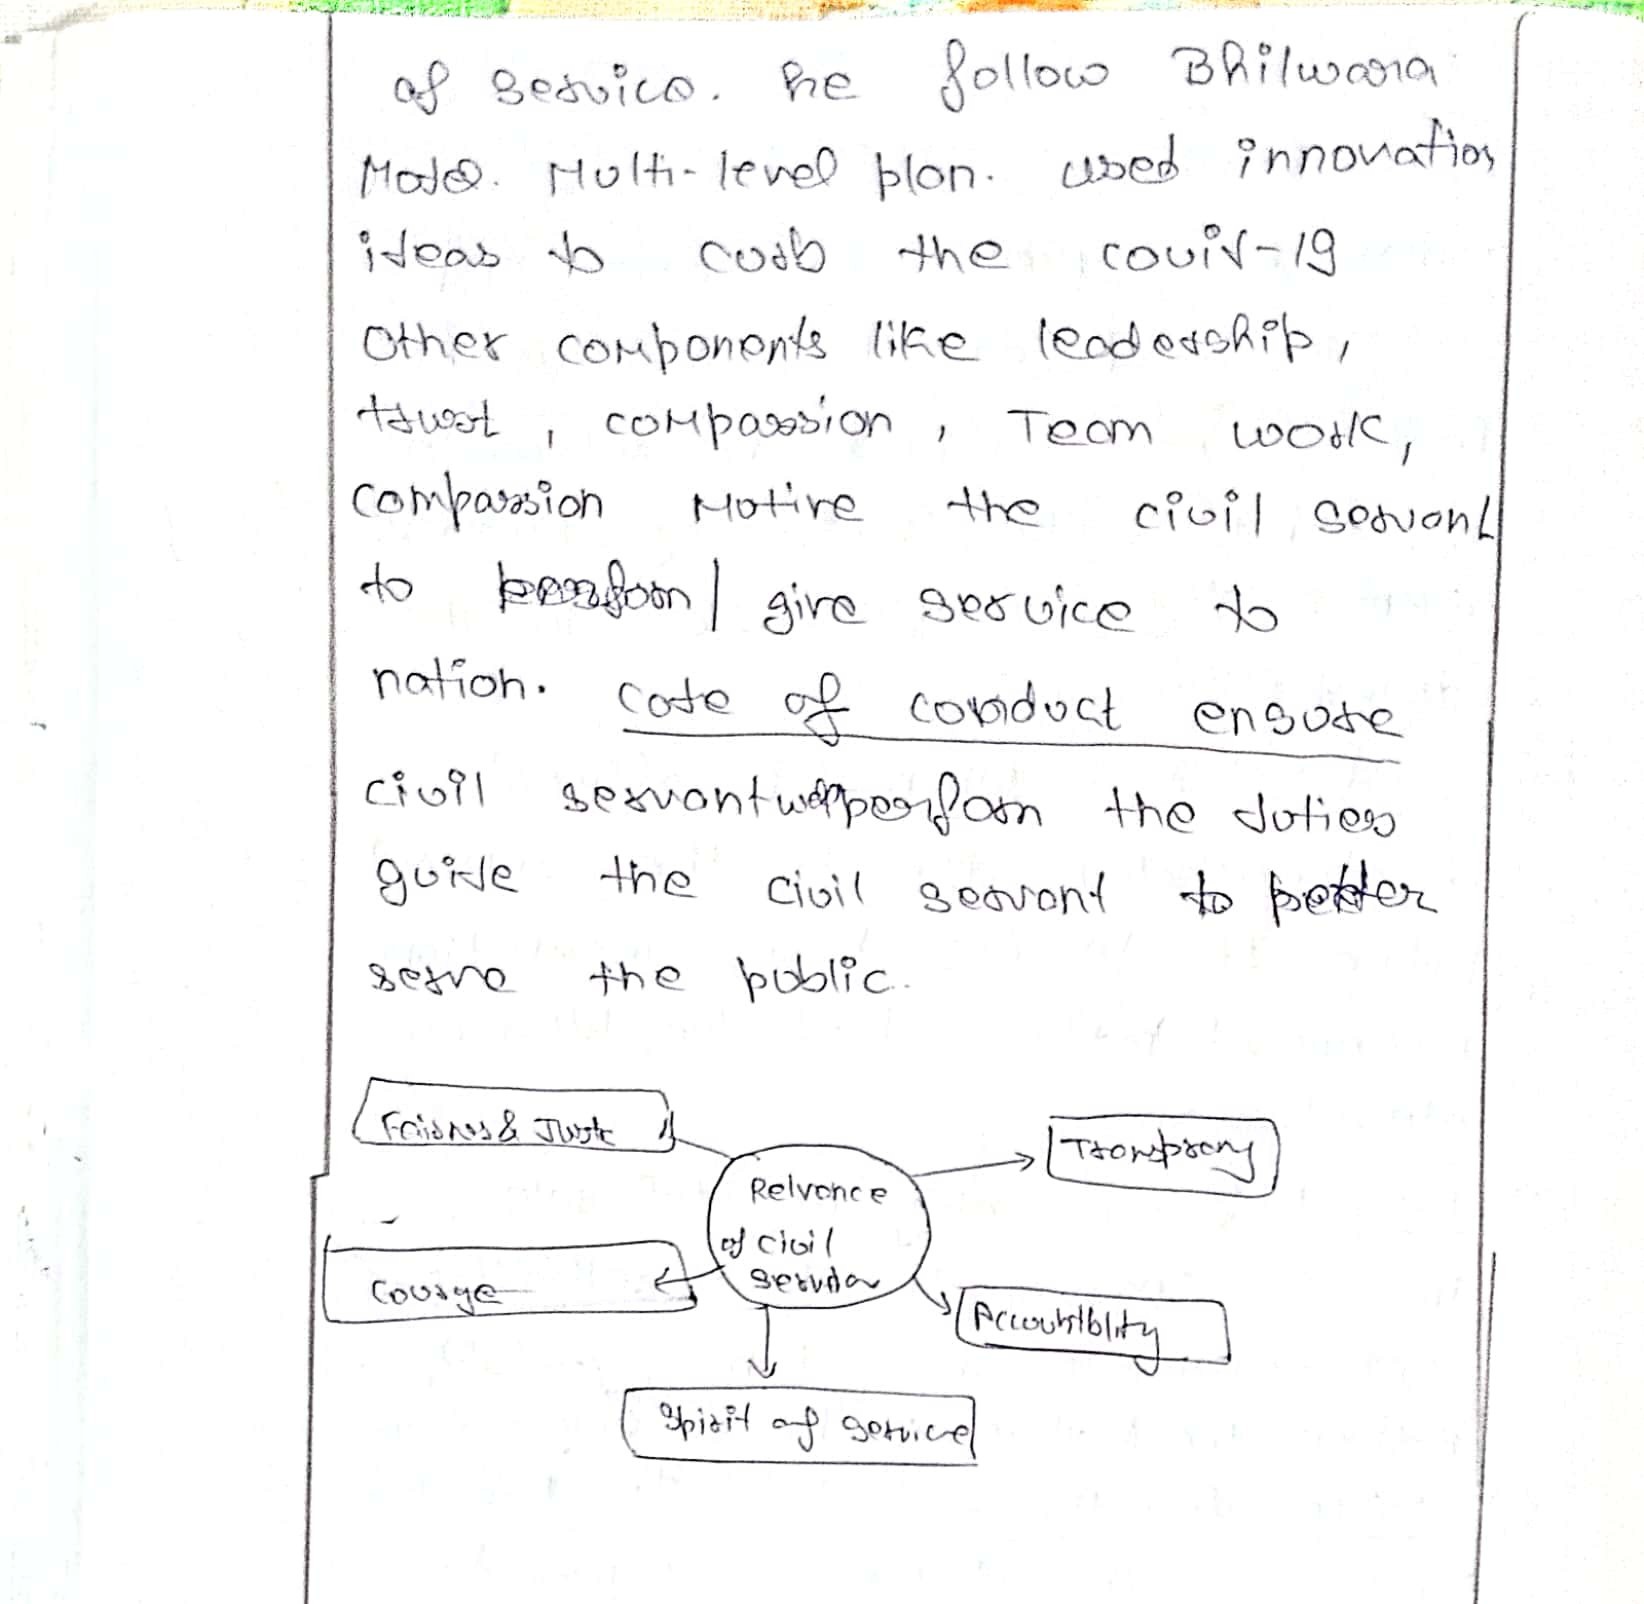 of service. he follow Bhilwara
Model. Multi-level plan. used innovation
ideas to curb the covid-19
Other components like leadership,
trust, compassion, Team work,
compassion Motive the civil servant
to perform / give service to
nation. code of conduct ensure
civil servant perform the duties
guide the civil servant to better
serve the public.
Fairness & Just
Transprany
Relvance
of civil
Courge
Accountiblity
Spirit of service